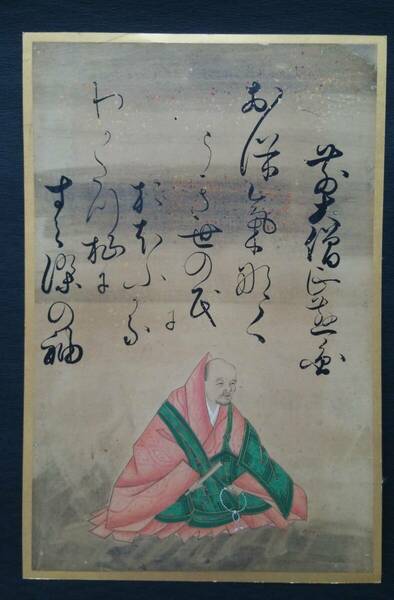 前大僧正慈圓
おほ氣那く
うき世の民に
おほふかな
わかたつ杣に
すみ染の袖